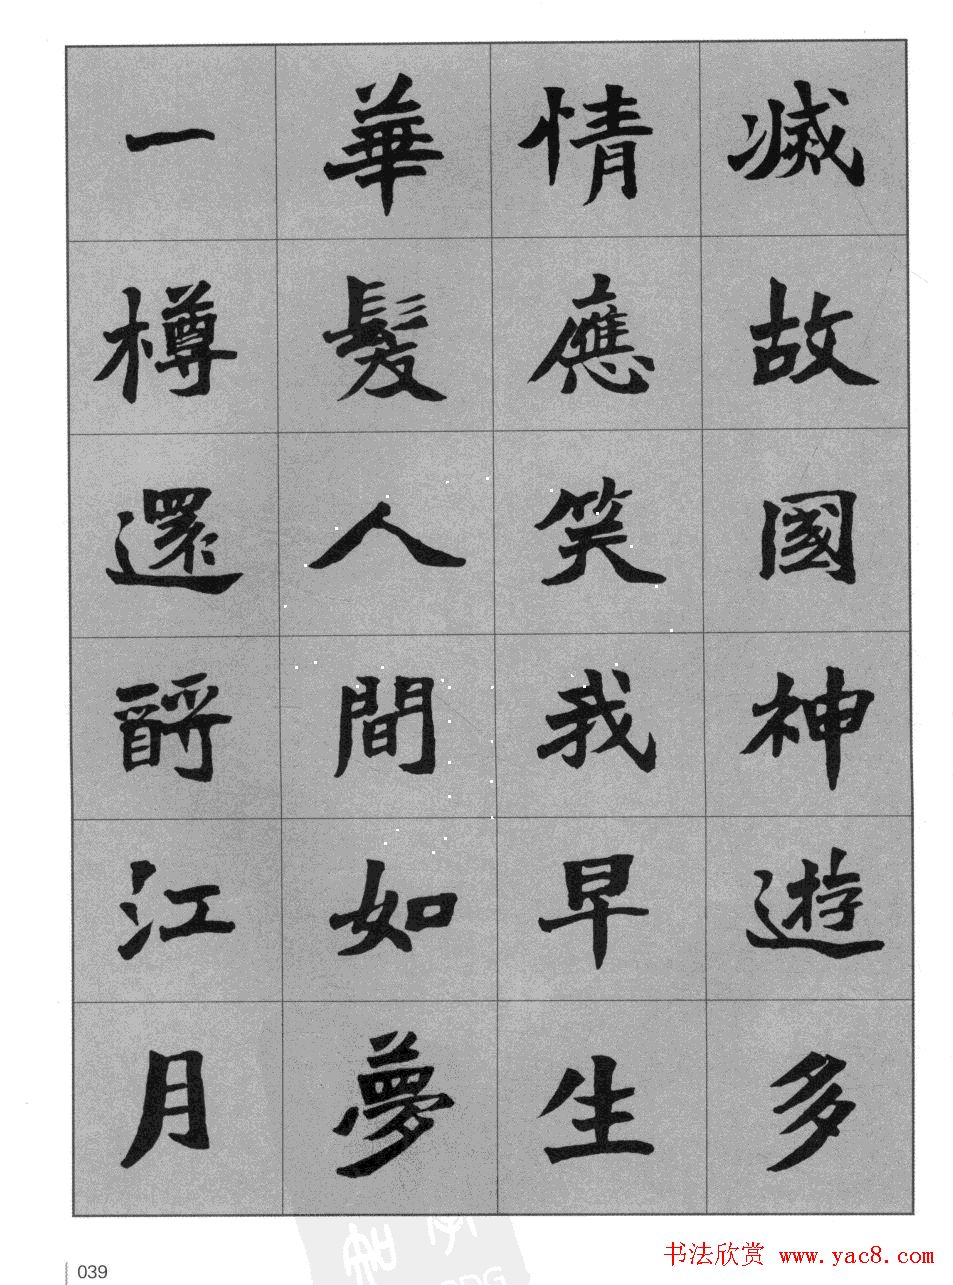 滅故國神遊多
情應笑我早生
華髮人間如夢
一樽還酹江月
039
书法欣赏 www.yac8.com